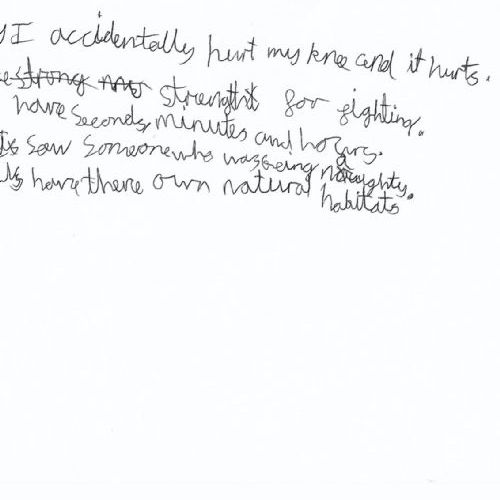 I accidentally hurt my knee and it hurts.
strength for fighting.
have seconds, minutes and hours.
saw someone who was being naughty.
have there own natural habitats.